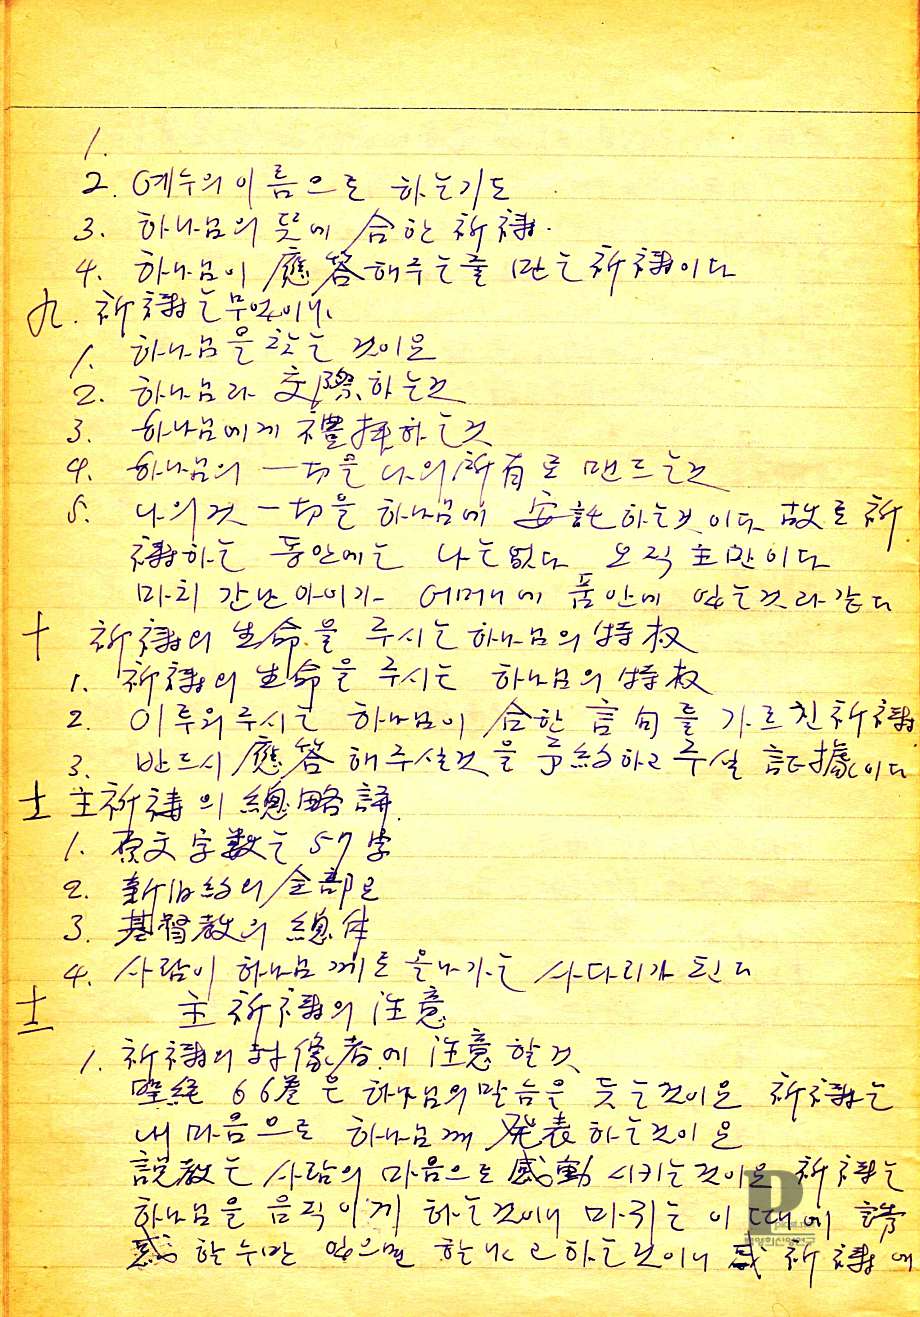 1.
2. 예수의 이름으로 하는기도
3. 하나님의 뜻에 合한 祈禱.
4. 하나님이 應答해주는줄 믿는 祈禱이다
九. 祈禱는 무엇이냐
1. 하나님을 찾는 것이요
2. 하나님과 交際하는것
3. 하나님에게 禮拜하는것
4. 하나님의 一切을 나의 所有로 맨드는것
5. 나의것 一切을 하나님에 安託하는것이다 故로 祈
禱하는 동안에는 나는없다 오직 主만이다
마치 간난아이가 어머니에 품안에 있는것과같다
十 祈禱의 生命을 주시는 하나님의 特权
1. 祈禱의 生命을 주시는 하나님의 特权
2. 이루워주시는 하나님이 合한 言句를 가르친 祈禱
3. 반드시 應答해주실것을 予約하고 주실 証據이다
十一 主祈禱의 總略論
1. 原文字数는 57字
2. 新旧約의 全部요
3. 基督教의 總体
4. 사람이 하나님께로 올나가는 사다리가 된다
十二 主祈禱의 注意
1. 祈禱의 対像者에 注意할것
聖経 66巻은 하나님의말슴은 듯는것이요 祈禱는
내 마음으로 하나님께 発表하는것이요
説教는 사람의 마음으로 感動시키는것이요 祈禱는
하나님을 움직이게 하는것이니 마귀는 이 때에
할수만 있으면 하는것이니 祈禱에